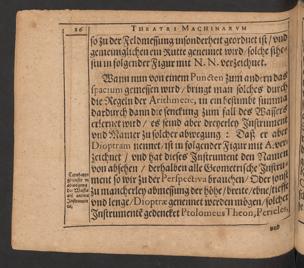 16 THEATRI MACHINARVM
so zu der Feldmessung insonderheit geordnet ist / vnd
gemeiniglichen ein Rutte genennet wird / solche sihe-
stu in folgender Figur mit N. N. verzeichnet.
Wann nun von einem Puncten zum andern das
spacium gemessen wird / bringt man solches durch
die Regeln der Arithmetic, in ein bestimbt summa
dardurch dann die senckung zum fall des Wassers
erlernet wird / es seind aber dreyerley Instrument
vnd Manier zu solcher abwegung : Daß er aber
Dioptram nennet / ist in folgender Figur mit A. ver-
zeichnet / vnd hat dieses Instrument den Namen
von absehen / derhalben alle Geometrische Instru-
ment so wir zu der Perspectiva brauchen / Oder sonst
zu mancherley abmessung der höhe / breite / ebne / tieffe
vnd lenge / Dioptræ genennet werden mögen / solcher
Instrumente gedencket Ptolomeus Theon, Pericles,
vnd